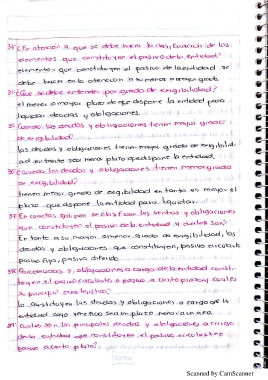 30 ¿En atención a que se debe hacer la clasificación de los
elementos que constituyen el pasivo de la entidad?
elementos que constituyen el pasivo de la entidad se
debe hacer en la atención a su menor o mayor grado
31 ¿Que se debe entender por grado de exigibilidad?
el menor o mayor plazo de que dispone la entidad para
liquidar deudas y obligaciones
32 ¿Cuando las deudas y obligaciones tienen mayor grado?
las deudas y obligaciones tienen mayor grado de exigibilid-
ad en tanto sea menor plazo que disponga la entidad.
¿Cuando las deudas y obligaciones tienen menor grado
de exigibilidad?
tienen menor grado de exigibilidad en tanto es mayor el
plazo que dispone la entidad para liquidar.
¿En cuantos grupos se clasifican las deudas y obligaciones
que constituyen el pasivo de la entidad y cuales son?
En tanto a su mayor o menor grado de exigibilidad, las
deudas y obligaciones que constituyen, pasivo circulante
pasivo fijo, pasivo diferido
deudas y obligaciones a cargo de la entidad consti-
tuyen el pasivo circulante o pasivo a corto plazo y cual es
su principal característica?
Lo constituyen las deudas y obligaciones a cargo de la
entidad cuyo vencimiento sea en plazo menor a un año.
¿Cuales son las principales deudas y obligaciones a cargo
de la entidad que constituyen el pasivo circulante o
pasivo a corto plazo?
Scribe
Scanned by CamScanner